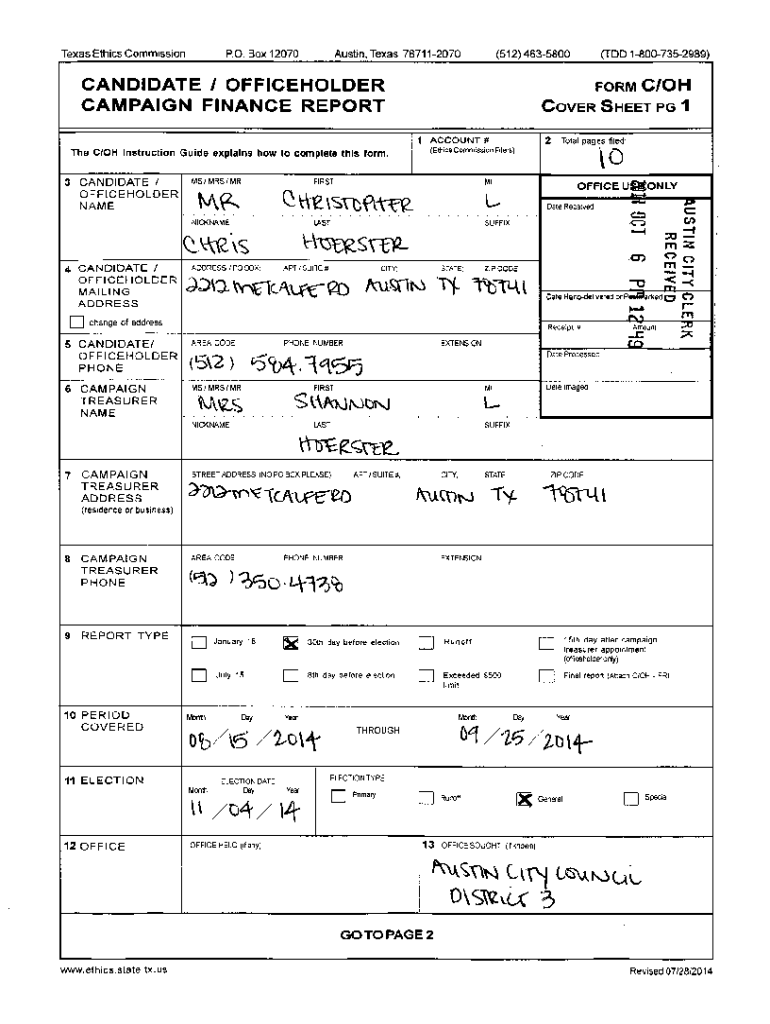 Texas Ethics Commission P.O. Box 12070 Austin, Texas 78711-2070 (512) 463-5800 (TDD 1-800-735-2989)
CANDIDATE / OFFICEHOLDER
CAMPAIGN FINANCE REPORT
FORM C/OH
COVER SHEET PG 1
The C/OH Instruction Guide explains how to complete this form.
1 ACCOUNT #
(Ethics Commission Filers)
2 Total pages filed:
10
3 CANDIDATE /
OFFICEHOLDER
NAME
MS / MRS / MR FIRST MI
MR CHRISTOPHER L
NICKNAME LAST SUFFIX
CHRIS HOERSTER
OFFICE USE ONLY
Date Received
AUSTIN CITY CLERK
RECEIVED
OCT 6 PM 12 49
4 CANDIDATE /
OFFICEHOLDER
MAILING
ADDRESS
change of address
ADDRESS / PO BOX; APT / SUITE #; CITY; STATE; ZIP CODE
2212 METCALFE RD AUSTIN TX 78741
Date Hand-delivered or Postmarked
Receipt # Amount
5 CANDIDATE/
OFFICEHOLDER
PHONE
AREA CODE PHONE NUMBER EXTENSION
(512) 584.7955
Date Processed
6 CAMPAIGN
TREASURER
NAME
MS / MRS / MR FIRST MI
MRS SHANNON L
NICKNAME LAST SUFFIX
HOERSTER
Date Imaged
7 CAMPAIGN
TREASURER
ADDRESS
(residence or business)
STREET ADDRESS (NO PO BOX PLEASE); APT / SUITE #; CITY; STATE ZIP CODE
2212 METCALFE RD AUSTIN TX 78741
8 CAMPAIGN
TREASURER
PHONE
AREA CODE PHONE NUMBER EXTENSION
(512) 350.4738
9 REPORT TYPE
January 15 30th day before election Runoff 15th day after campaign
treasurer appointment
(officeholder only)
July 15 8th day before election Exceeded $500
limit
Final report (Attach C/OH - FR)
10 PERIOD
COVERED
Month Day Year Month Day Year
08 / 15 / 2014 THROUGH 09 / 25 / 2014
11 ELECTION
ELECTION DATE
Month Day Year
11 / 04 / 14
ELECTION TYPE
Primary Runoff General Special
12 OFFICE
OFFICE HELD (if any)
13 OFFICE SOUGHT (if known)
AUSTIN CITY COUNCIL
DISTRICT 3
GO TO PAGE 2
www.ethics.state.tx.us Revised 07/28/2014